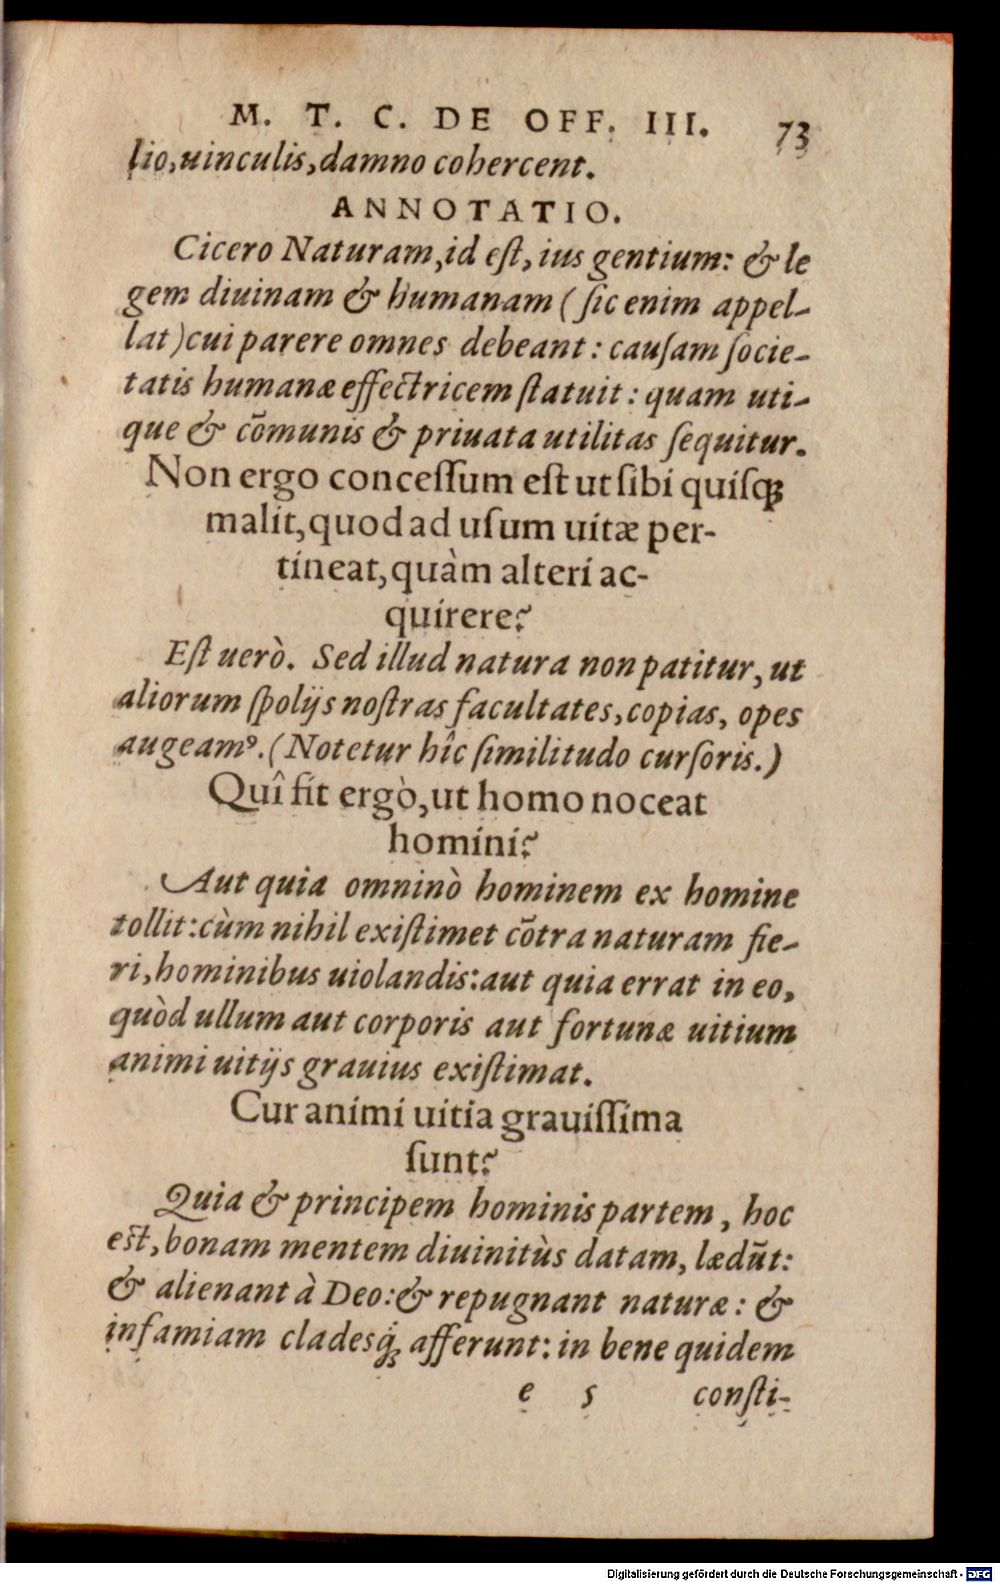 M. T. C. DE OFF. III. 73
lio,uinculis,damno cohercent.
ANNOTATIO.
Cicero Naturam,id eſt, ius gentium: & le
gem diuinam & humanam ( ſic enim appel-
lat )cui parere omnes debeant : cauſam ſocie-
tatis humanæ effectricem ſtatuit : quam uti-
que & cõmunis & priuata utilitas ſequitur.
Non ergo conceſſum eſt ut ſibi quiſqꝫ
malit,quod ad uſum uitæ per-
tineat,quàm alteri ac-
quirere?
Eſt uerò. Sed illud natura non patitur, ut
aliorum ſpolijs noſtras facultates,copias, opes
augeamꝰ.(Notetur hîc ſimilitudo curſoris.)
Quî fit ergò,ut homo noceat
homini?
Aut quia omninò hominem ex homine
tollit:cùm nihil exiſtimet cõtra naturam fie-
ri,hominibus uiolandis:aut quia errat in eo,
quòd ullum aut corporis aut fortunæ uitium
animi uitijs grauius exiſtimat.
Cur animi uitia grauiſſima
ſunt?
Quia & principem hominis partem, hoc
eſt,bonam mentem diuinitùs datam, lædũt:
& alienant à Deo:& repugnant naturæ : &
infamiam cladesq́ꝫ afferunt: in bene quidem
e 5 conſti-
Digitalisierung gefördert durch die Deutsche Forschungsgemeinschaft - DFG